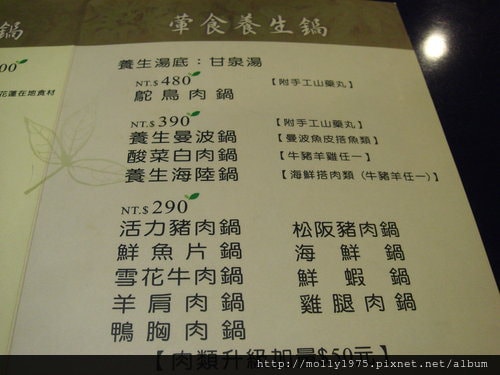 鍋
葷食養生鍋
00
花蓮在地食材
養生湯底：甘泉湯
NT.$ 480
鴕鳥肉鍋 【附手工山藥丸】
NT.$ 390 【附手工山藥丸】
養生曼波鍋 【曼波魚皮搭魚類】
酸菜白肉鍋 【牛豬羊雞任一】
養生海陸鍋 【海鮮搭肉類（牛豬羊雞任一）】
NT.$ 290
活力豬肉鍋 松阪豬肉鍋
鮮魚片鍋 海鮮鍋
雪花牛肉鍋 鮮蝦鍋
羊肩肉鍋 雞腿肉鍋
鴨胸肉鍋
【肉類升級加量$50元】
http://molly1975.pixnet.net/album